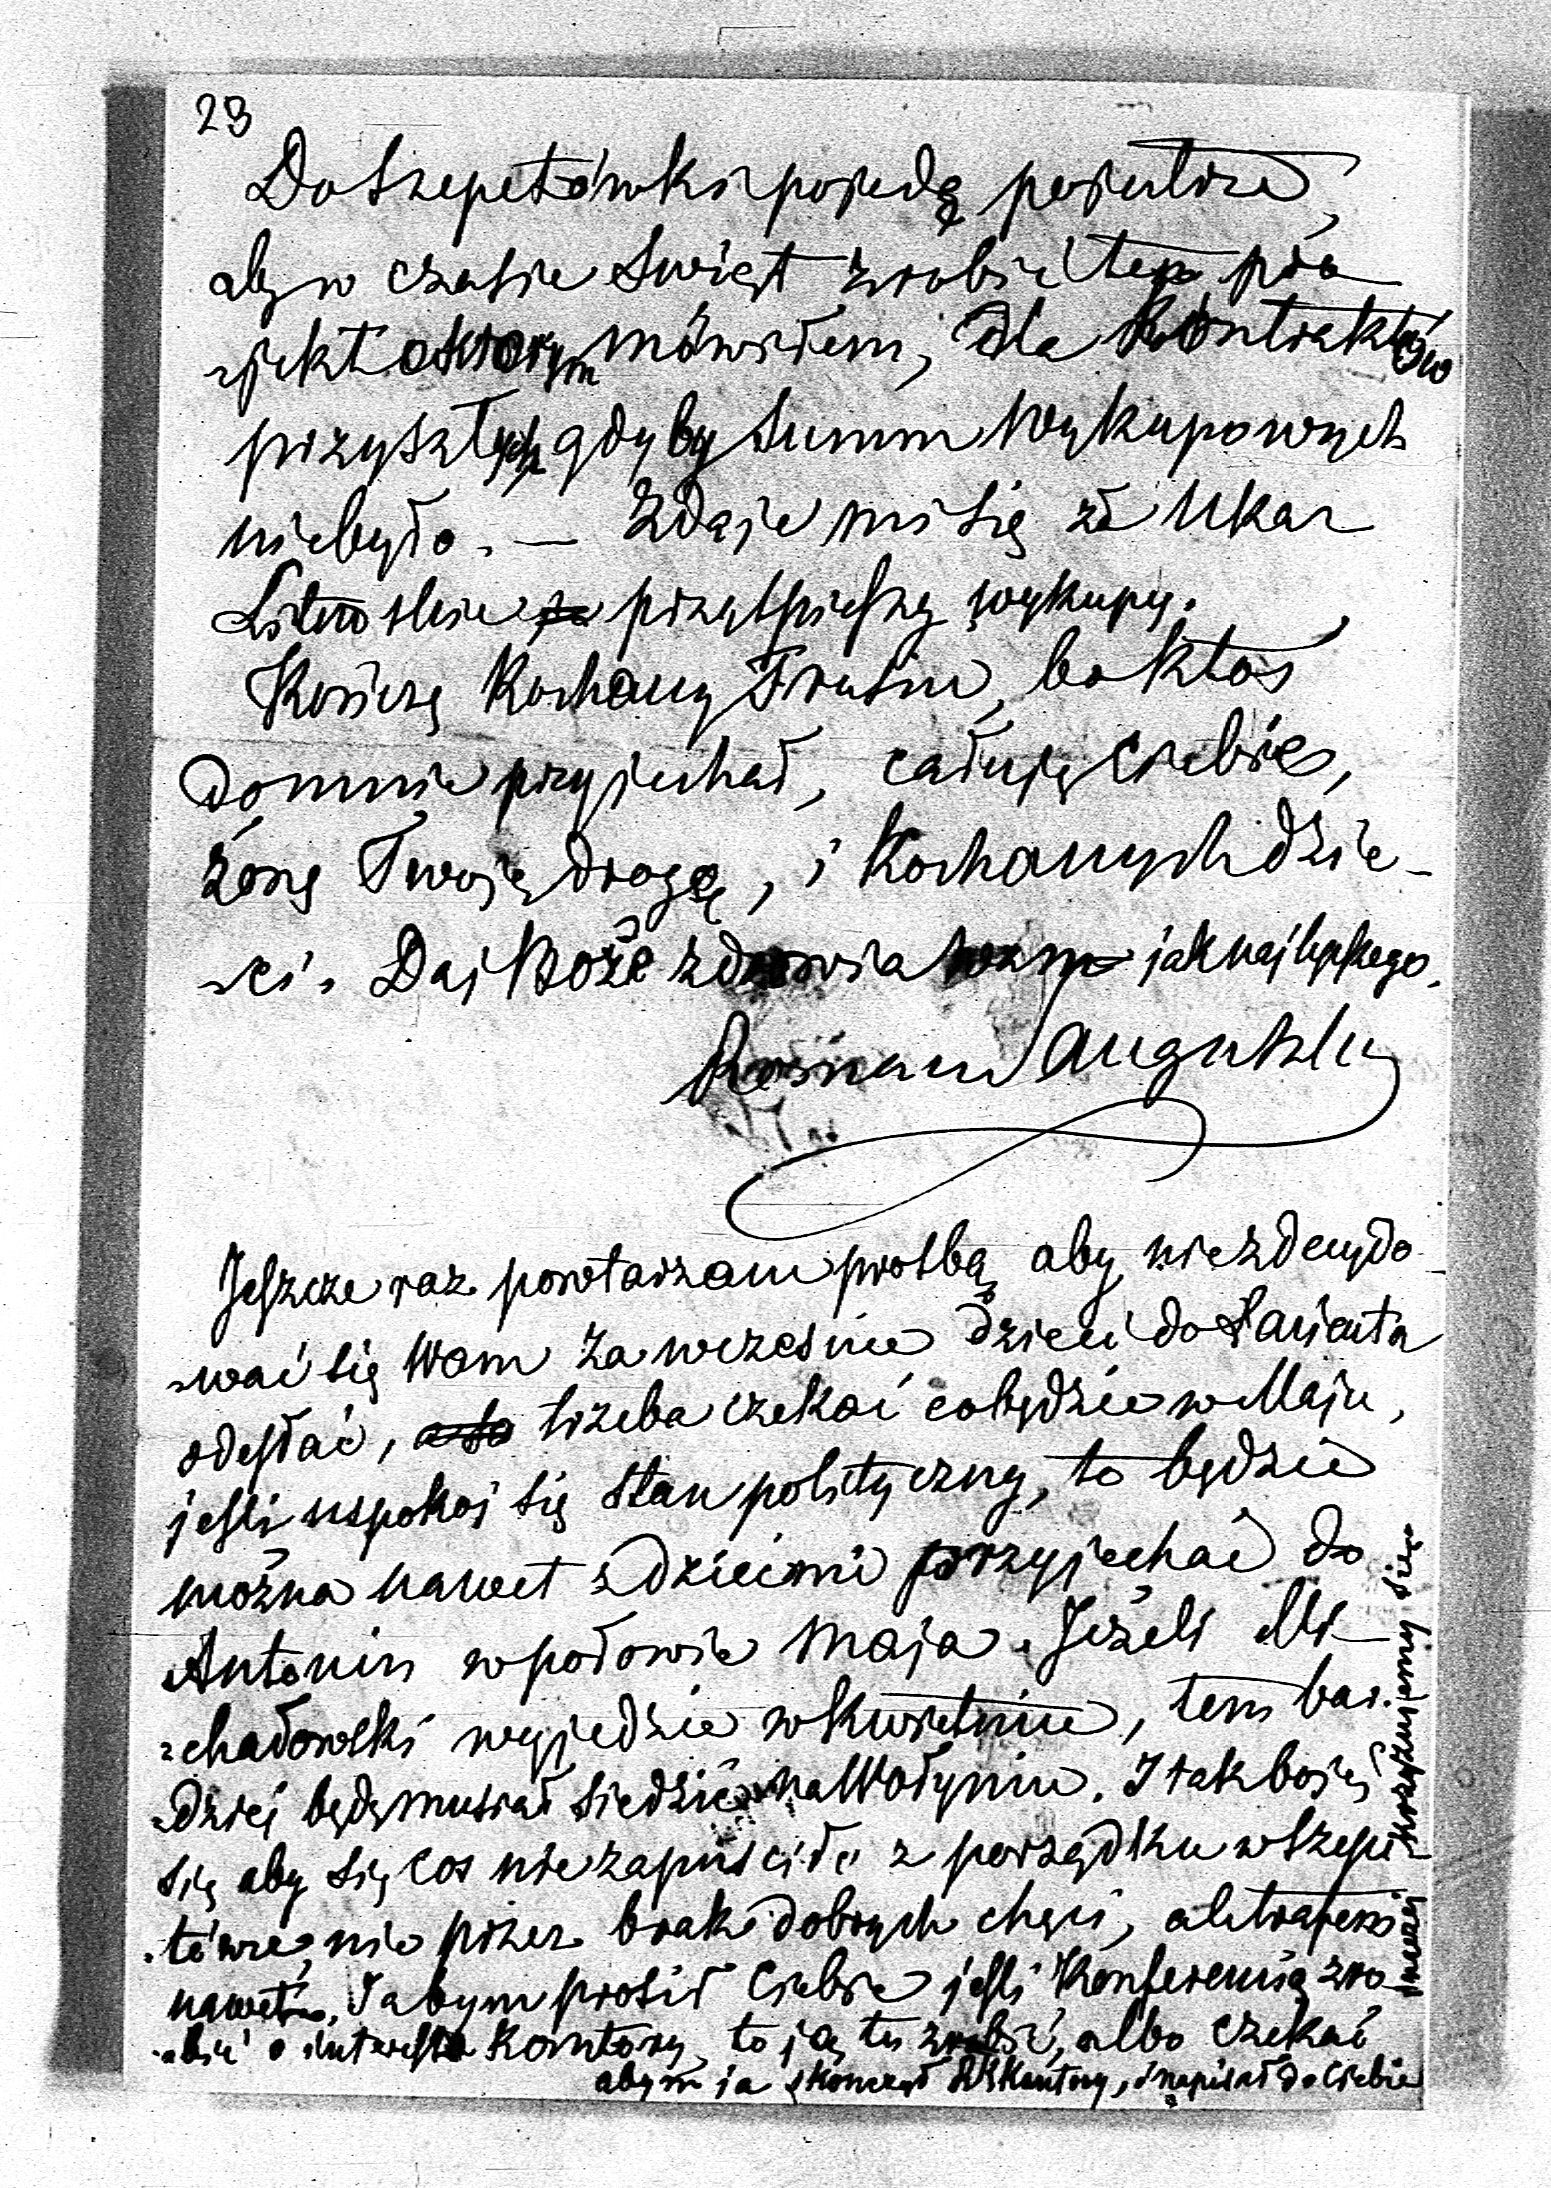 23
Do Szepetówki pojadę pojutrze,
aby w czasie Swięt zrobić ten pro
-jekt o którym mówiłem, dla Kontraktów
przyszłych gdyby Summ Wykupowych
niebyło. — Zdaje mi się że Ukaz
Litewskie przyspieszy wykupy.
Kończę Kochany Trusiu, bo ktoś
do mnie przyjechał, całuję Ciebie,
Żonę Twoję drogę, i Kochanych dzie-
-ci. Daj Boże zdrowia Wam jaknajlepszego.
Roman Sanguszko
Jeszcze raz powtarzam prosbę aby niezdecydo-
-wać się Wam zawczesnie dzieci do Sacienta
odesłać, trzeba czekać co będzie w Maju,
jeśli uspokoi się Stan polityczny, to będzie
można nawet z Dziećmi przyjechać do
Antonin w połowie Maja. Jeżeli Mi-
-chałowski wyjedzie w Kwietniu, tem bar-
-dziej będę musiał siedzieć na Wołyniu. I tak boję
się aby się cos nie zapusciło z porządku w Szepe-
-tówce, nie przez brak dobrych chęci, ale
nawet. Ja bym prosił Ciebie jeśli Konferencią zro-
-bić o interessa Kontory, to ją tu zrobić, albo czekać
abym ja skonczył Kontory, i napisał do Ciebie
inaczej się